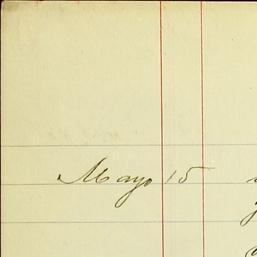 Mayo 15